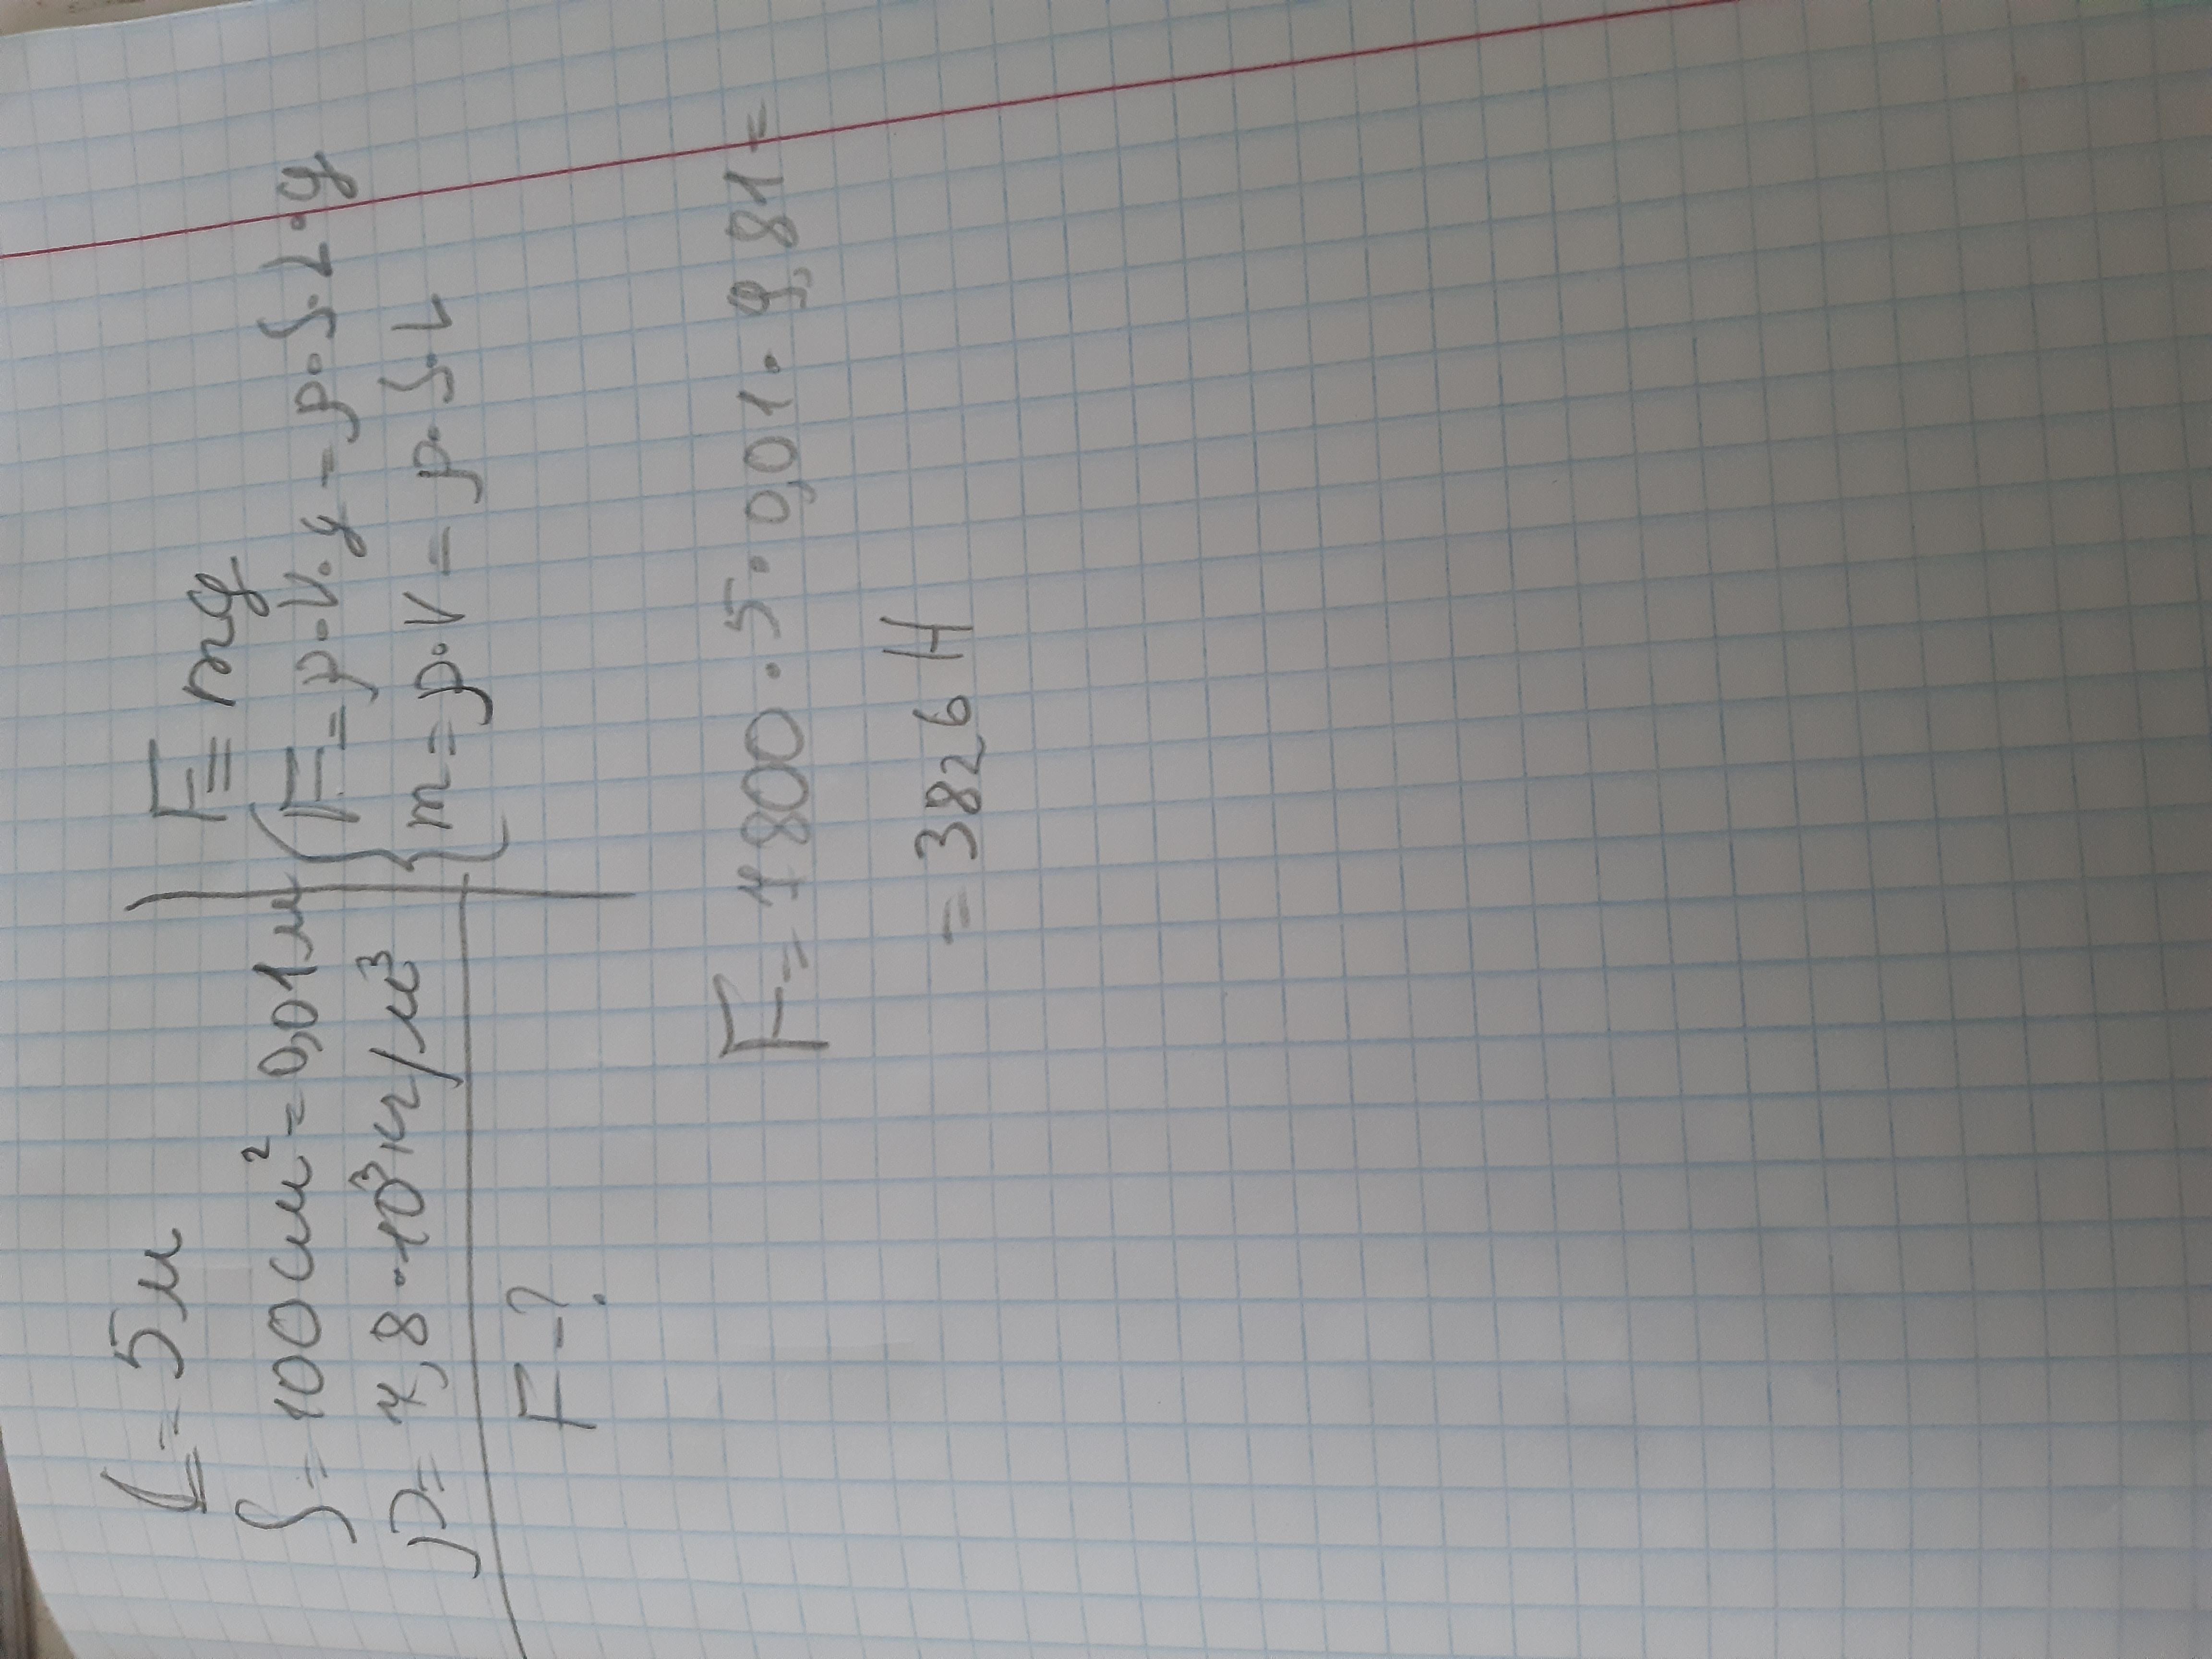 L = 5м
S = 100 см² = 0,01 м
ρ = 7,8 · 10³ кг/м³
F - ?
F = mg
F = ρ · V · g = ρ · S · L · g
m = ρ · V = ρ · S · L
F = 7800 · 5 · 0,01 · 9,81 =
= 3826 Н